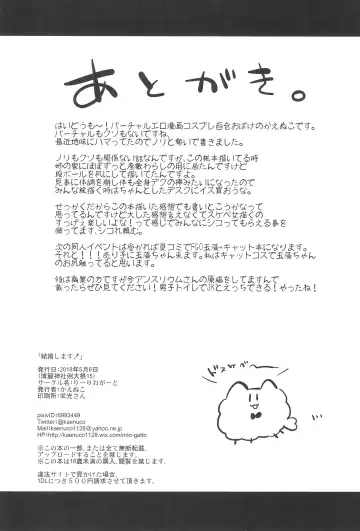 あとがき。
はいどうも～！バーチャルエロ漫画コスプレ百合おばけのかえぬこです。
バーチャルもクソもないですね、
最近地味にハマってたのでノリと勢いで書きました。
ノリもクソも関係ない話なんですが、この絵本描いてる時
時の家にほぼずっと座敷わらしの用に居たんですけど
段ボールを机にして描いてたんですよ。
見事に体調を崩し体も全身デクの棒みたいになったので
みんな絵描く時はちゃんとしたデスクにイス買おうな。
せっかくだからこの本描いた感想でも書いとこうかなって
思ってるんですけど大した感想言えなくてスケベ女描くの
すっげぇ楽しいよな！って感じでみんなにシコってもらえる事を
願ってます、シコれ頼む。
次の同人イベントは受かれば夏コミでFGO玉藻・キャット本になります。
それと！！！ホリ子に玉藻ちゃん来ます。私はキャットコスで玉藻ちゃん
のお尻触ってると思います。
後は商業の方ですが今アンスリウムさんの原稿をしてますんで
載ったらぜひ見てください！男子トイレでJKとえっちできる！やったー！
「結婚します！」
発行日：2018年5月6日
（博麗神社例大祭15）
サークル名：りーりおがーと
発行者：かえぬこ
印刷所：栄光さん
pixivID：6993449
Twitter：@kaenuco
Mail：kaenuco1128@yahoo.ne.jp
HP：http://kaenuco1128.wix.com/inrio-gatto
※この本の一部、または全て無断転載、
アップロードすることを禁じます。
※この本は18歳未満の購入、閲覧を禁じます。
違法サイトで見かけた場合、
1DLにつき500円請求させて頂きます。